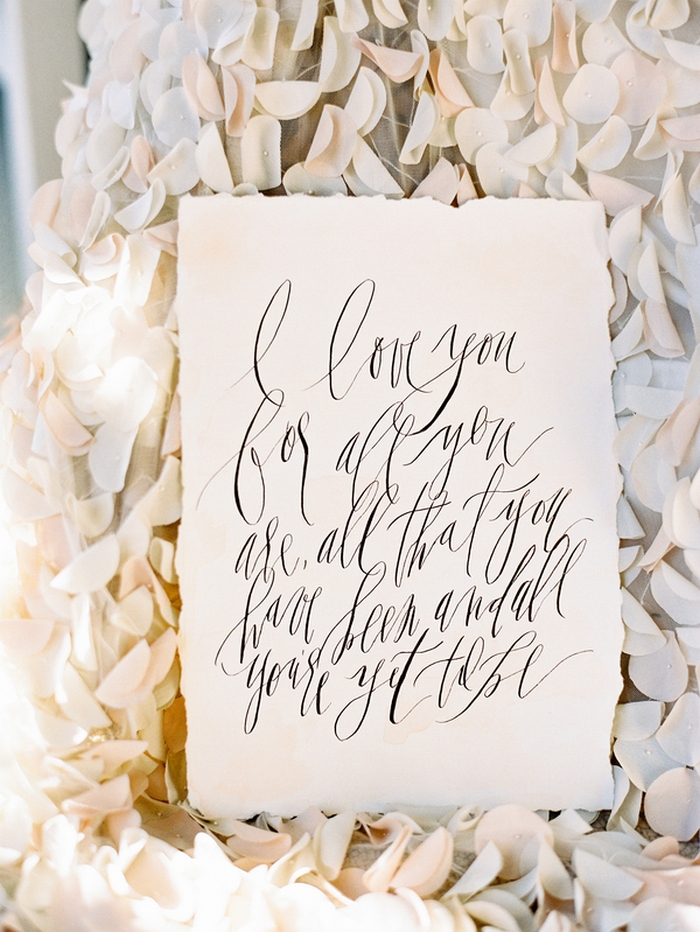 I love you
for all you
are, all that you
have been and all
you're yet to be